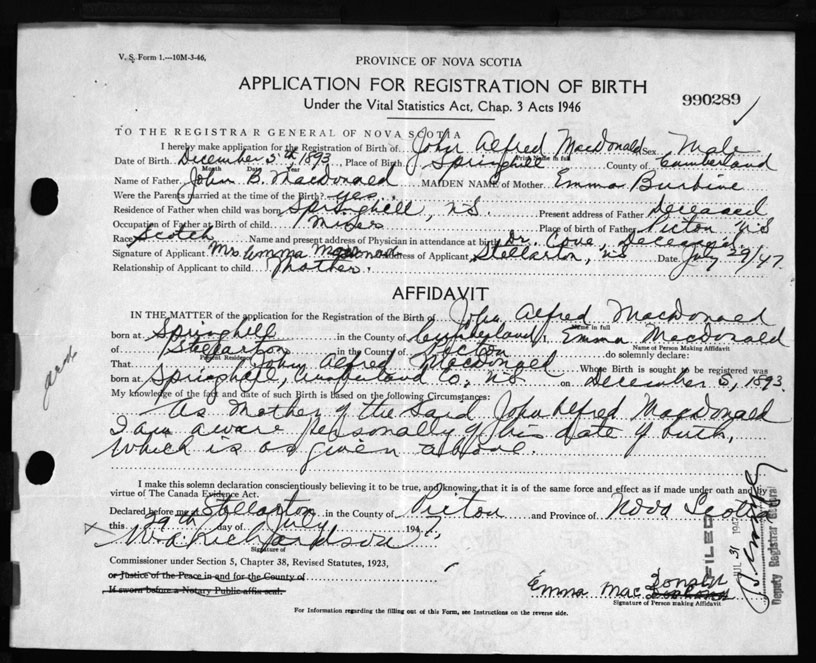 V. S. Form 1.—10M-3-46.
PROVINCE OF NOVA SCOTIA
APPLICATION FOR REGISTRATION OF BIRTH
Under the Vital Statistics Act, Chap. 3 Acts 1946
990289
TO THE REGISTRAR GENERAL OF NOVA SCOTIA
I hereby make application for the Registration of Birth of John Alfred MacDonald Sex Male
Print Name in full
Date of Birth December 5th, 1893, Place of Birth Springhill County of Cumberland
Month Date Year
Name of Father John B. Macdonald MAIDEN NAME of Mother Emma Burbine
Were the Parents married at the time of the Birth? yes.
Residence of Father when child was born Springhill, N.S. Present address of Father Deceased
Occupation of Father at Birth of child Miner Place of birth of Father Picton N.S.
Race Scotch Name and present address of Physician in attendance at birth Dr. Cove, Deceased
Signature of Applicant Mrs Emma Address of Applicant Stellarton, NS Date July 29/47
Relationship of Applicant to child mother.
AFFIDAVIT
IN THE MATTER of the application for the Registration of the Birth of John Alfred Macdonald
Name in full
born at Springhill in the County of Cumberland, Emma Macdonald
Name of Person Making Affidavit
of Stellarton in the County of Picton do solemnly declare:
Present Residence
That John Alfred Macdonald Whose Birth is sought to be registered was
born at Springhill, Cumberland Co., NS on December 5, 1893.
My knowledge of the fact and date of such Birth is based on the following Circumstances:
As Mother of the said John Alfred MacDonald
I am aware personally of his date of birth,
which is as given above.
I make this solemn declaration conscientiously believing it to be true, and knowing that it is of the same force and effect as if made under oath and by
virtue of The Canada Evidence Act.
Declared before me at Stellarton in the County of Picton and Province of Nova Scotia
this 29th day of July 1947
x W.A. Richardson
Signature of
Commissioner under Section 5, Chapter 38, Revised Statutes, 1923,
or Justice of the Peace in and for the County of
If sworn before a Notary Public affix seal.
Emma MacDonald
Signature of Person making Affidavit
For Information regarding the filling out of this Form, see Instructions on the reverse side.
FILED
JUL 31 1947
Deputy Registrar General